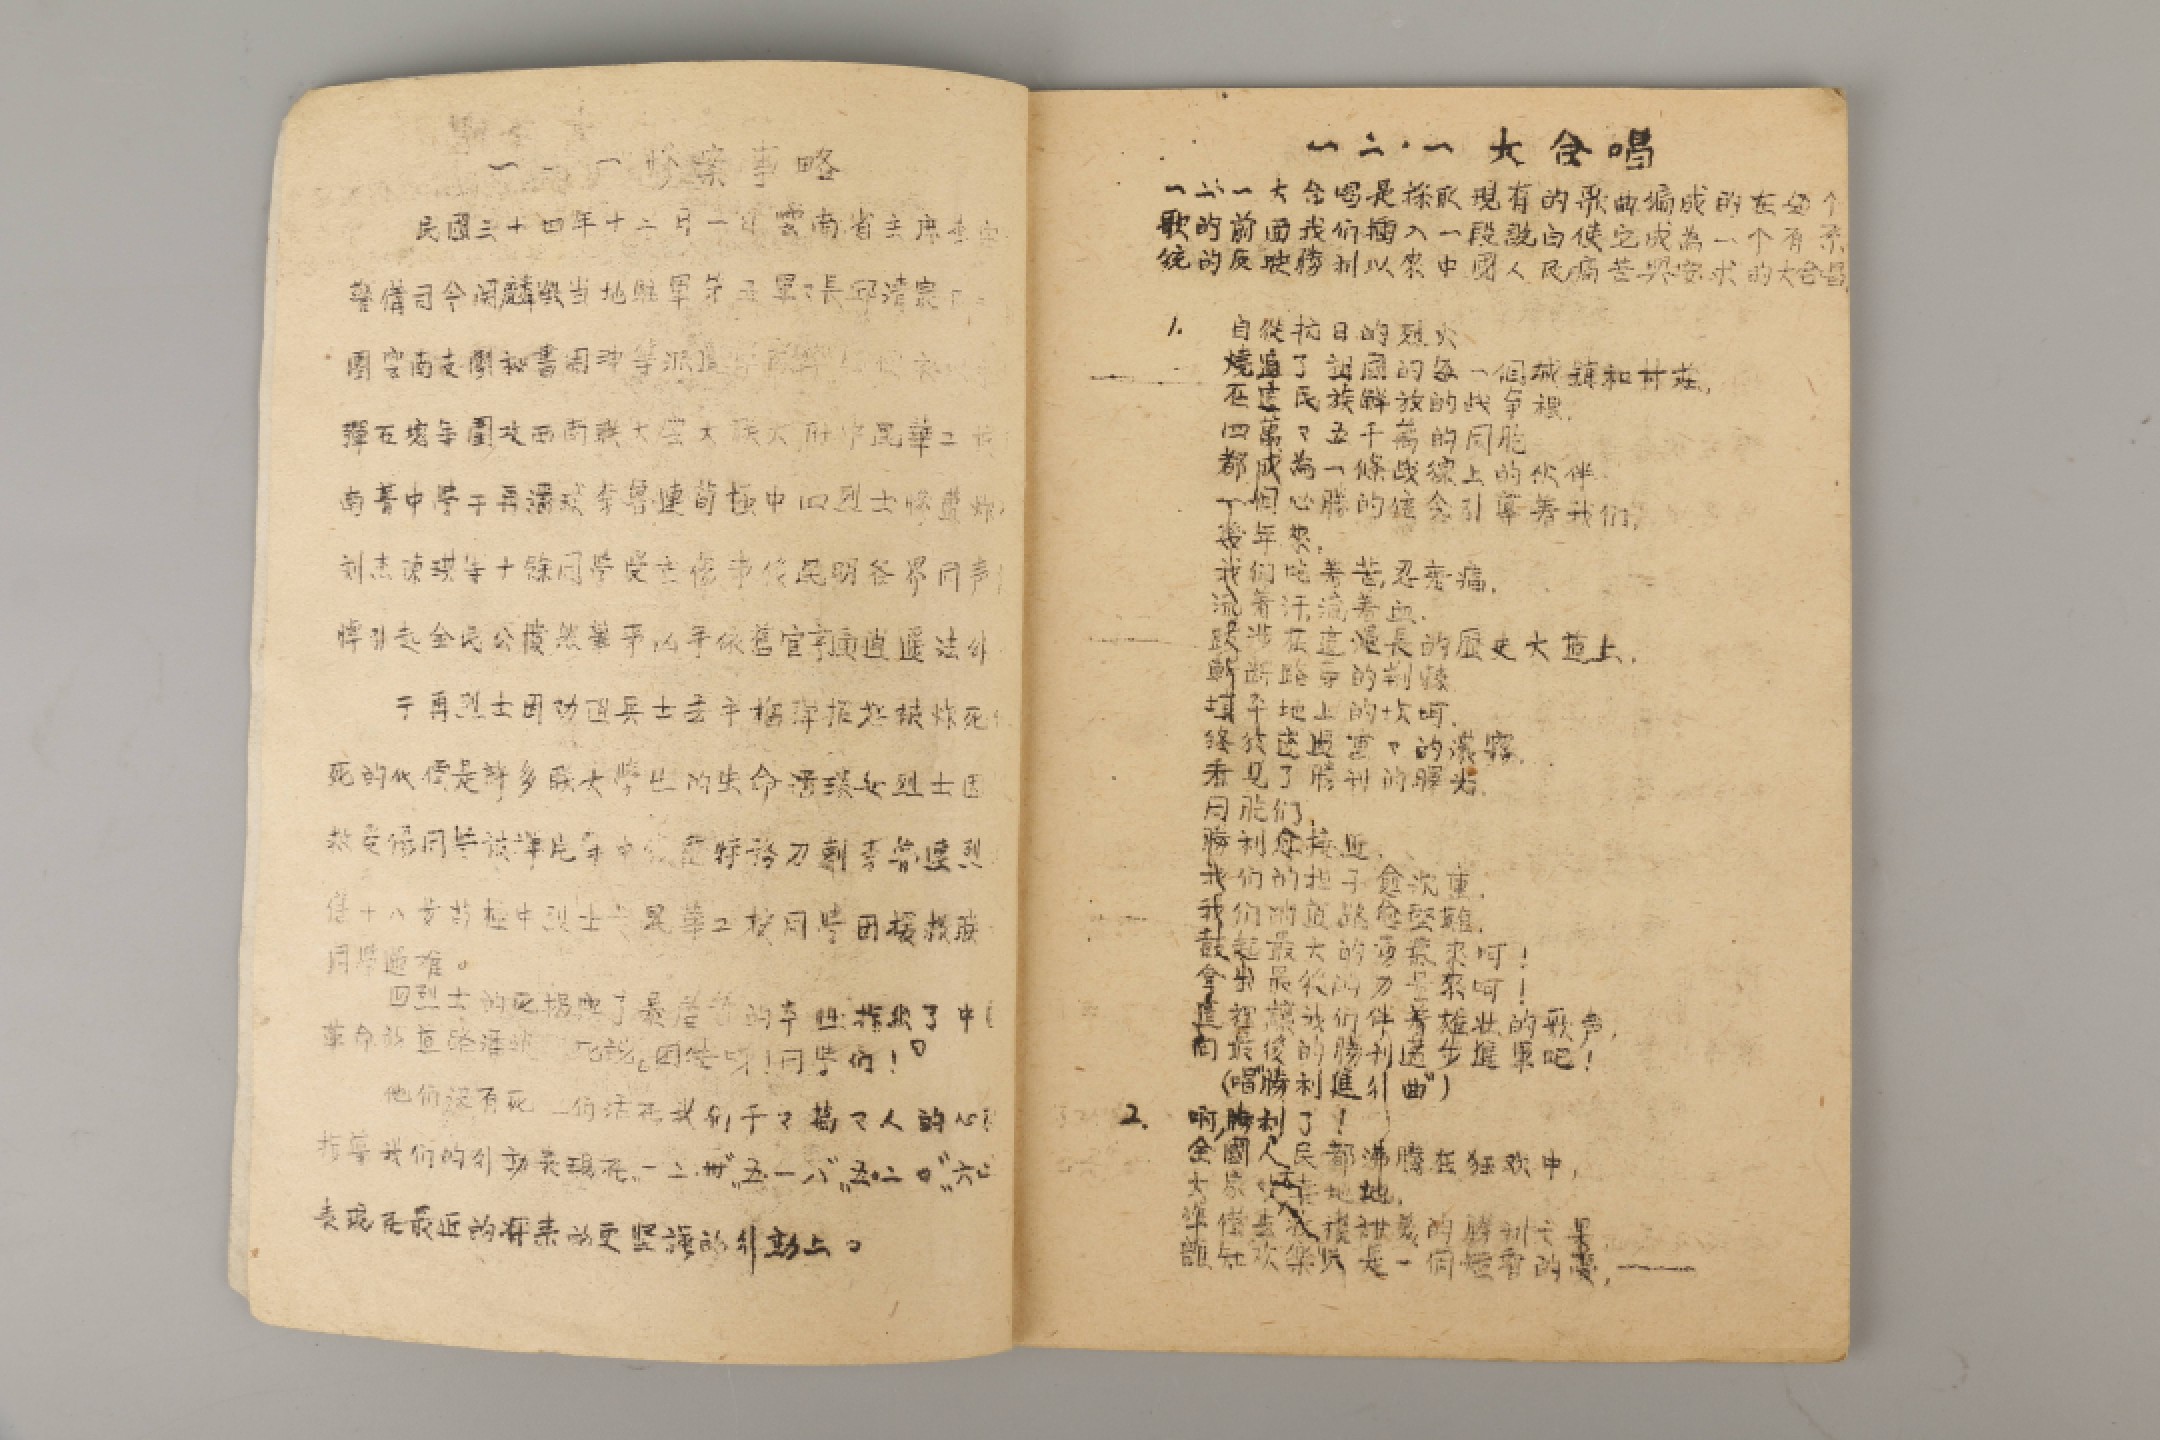 一二一惨案事略
民國三十四年十二月一日雲南省主席李宗
警備司令関麟徴当地駐軍第五軍々長邱清泉
團雲南支團秘書周紳等派
彈石塊等圍攻西南联大雲大联大附中昆華工校
南菁中学于再潘琰李魯連荀極中四烈士惨遭炸
刘杰 等十餘同学受 傷事後昆明各界同声
悼引起全民公憤然肇事凶手依舊官亨 逍遥法外
于再烈士因劝迅兵士丢手榴弹 被炸死
死的代價是許多联大学生的生命潘琰女烈士因
救受傷同学被弹片 中後 特務刀刺李魯連烈
僅十八岁荀極中烈士 昆華工校同学因援救联
同学遇难。
四烈士的死揭 了最 的 指出了中
革命的道路潘 說。团结呀!同学们!"
他们没有死 们活在我们千々萬々人的心
指導我们的行動表現在"一二.卅""五.一八""五.二〇""六
表现在最近的 来的更坚 的行動上。
一二·一大合唱
一二一大合唱是採取現有的歌曲编成的在每个
歌的前面我们插入一段說白使它成為一个有系
統的反映勝利以來中國人民痛苦與要求的大合唱
1. 自從抗日的烈火
燒遍了祖國的每一個城鎮和村莊,
在这民族解放的战争裡.
四萬々五千萬的同胞
都成為一條战線上的伙伴.
一個必勝的信念引導着我们,
幾年來,
我们吃着苦,忍着痛,
流着汗,流着血.
跋涉在这漫長的歷史大道上,
斬断路旁的荆棘
填平地上的坎坷.
终於透過重々的濃霧,
看见了勝利的曙光.
同胞们,
勝利愈接近,
我们的担子愈沉重.
我们的道路愈堅難,
鼓起最大的勇氣來呵!
拿出最後的力量來呵!
進 讓我们伴着雄壮的歌声,
向最後的勝利邁步進軍吧!
(唱"勝利進行曲")
2. 啊,勝利了!
全國人民都沸騰在狂欢中,
大家 喜地地,
準備去收穫 的勝利之果
誰知欢樂只是一個短暫的夢,——